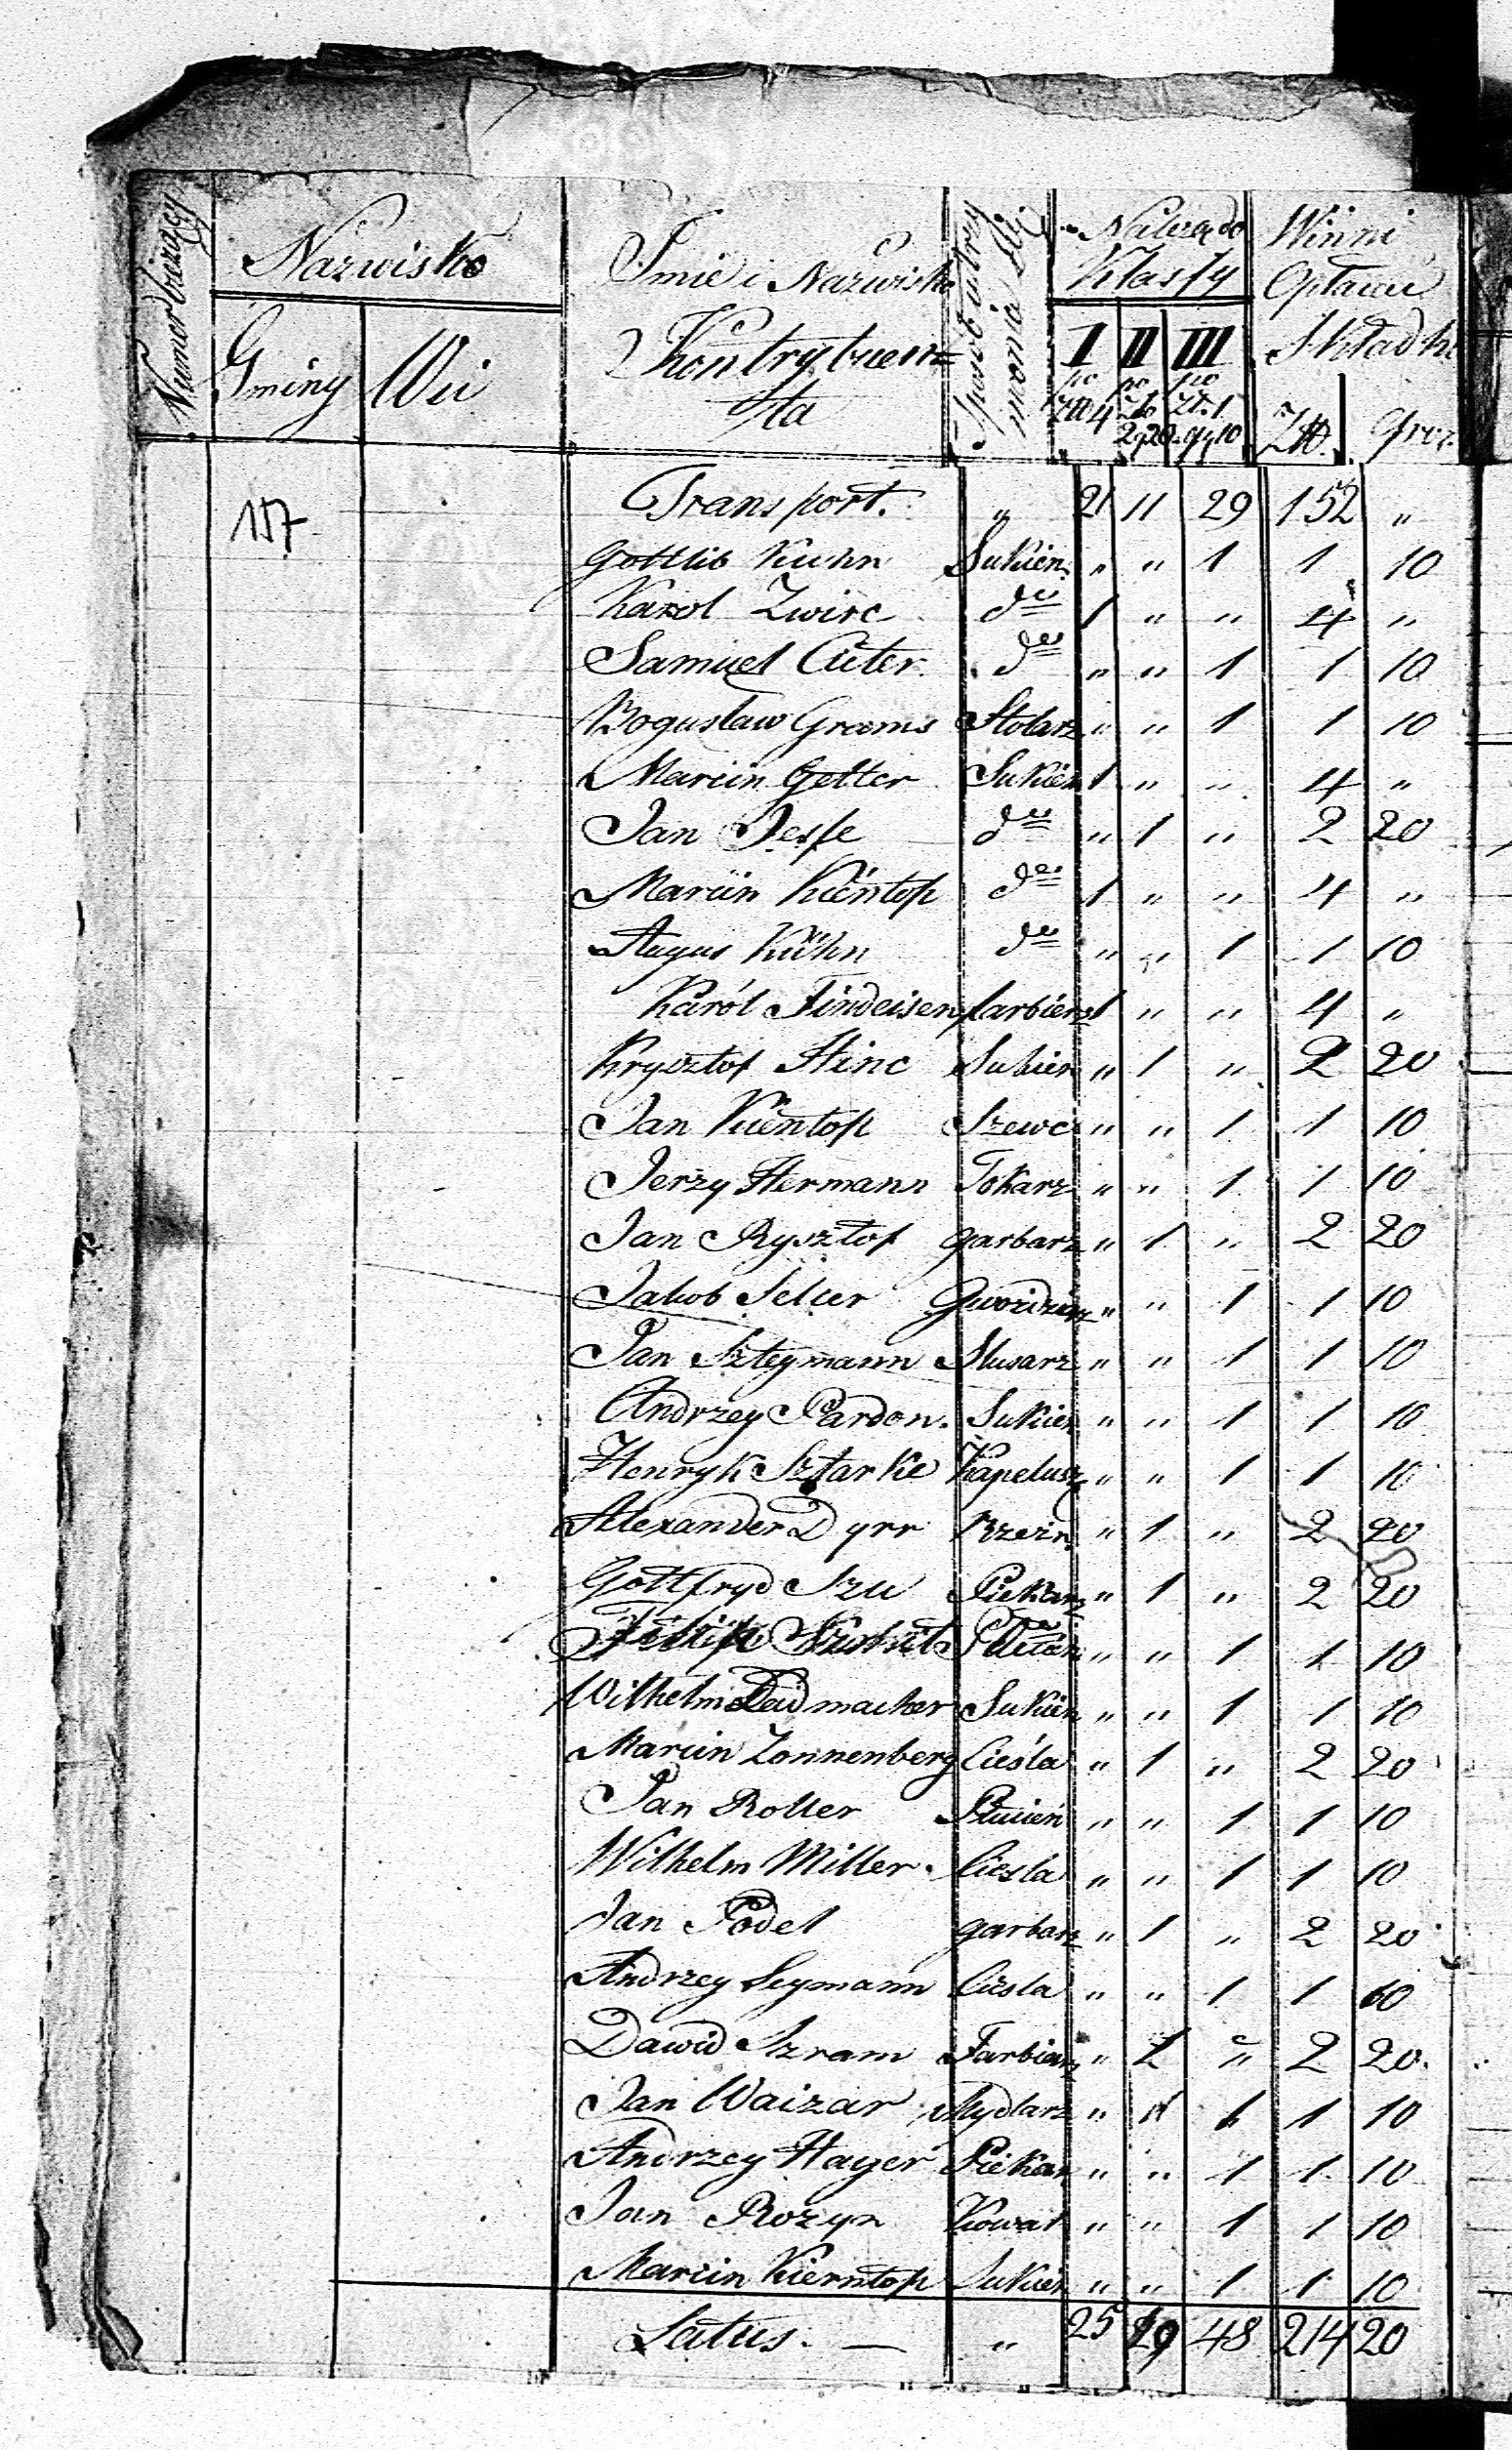 Numer bieżący
Nazwisko
Gminy Wsi
Imie i Nazwisko
Kontrybuen=
ta
Sposób utrzy
mania się
Należą do
Klassy
I II III
po po po
Zł 4 Zł Zł. 1
2 g 20 gr 10
Winni
Opłacić
Składki
Złt. Groz.
117
Transport. " 21 11 29 152 "
Gottlib Kuhn Sukien. " " 1 1 10
Karol Zwirc dto 1 " " 4 "
Samuel Cieter dto " " 1 1 10
Bogusław Grams Stolarz " " 1 1 10
Marcin Getter Sukien 1 " " 4 "
Jan Jesse dto " 1 " 2 20
Marcin Kientop dto 1 " " 4 "
Augus Kühn dto " " 1 1 10
Karól Findeisen farbierz 1 " " 4 "
Krysztof Hinc Sukien " 1 " 2 20
Jan Kientop Szewc " " 1 1 10
Jerzy Hermann Tokarz " " 1 1 10
Jan Rysztof garbarz " 1 " 2 20
Jakob Gwoździarz " " 1 1 10
Jan Szteymann Slusarz " " 1 1 10
Andrzey Pardon. Sukien " " 1 1 10
Henryk Sztarke Kapelusz " " 1 1 10
Alexander Dyrr Rzeźn. " 1 " 2 20
Gottfryd Szu Piekarz " 1 " 2 20
" " 1 1 10
Wilhelm Deidmacher Sukien " " 1 1 10
Marcin Zonnenberg Cieśla " 1 " 2 20
Jan Roller " " 1 1 10
Wilhelm Miller. Ciesla " " 1 1 10
Jan Podel garbarz " 1 " 2 20
Andrzey Seymann Ciesla " " 1 1 10
Dawid Szram Farbiarz " 1 " 2 20
Jan Waizar Mydlarz " " 1 1 10
Andrzey Hayer Piekar " " 1 1 10
Jan Rozyn Kowal " " 1 1 10
Marcin Kierntop Sukien " " 1 1 10
Latus. — " 25 19 48 214 20